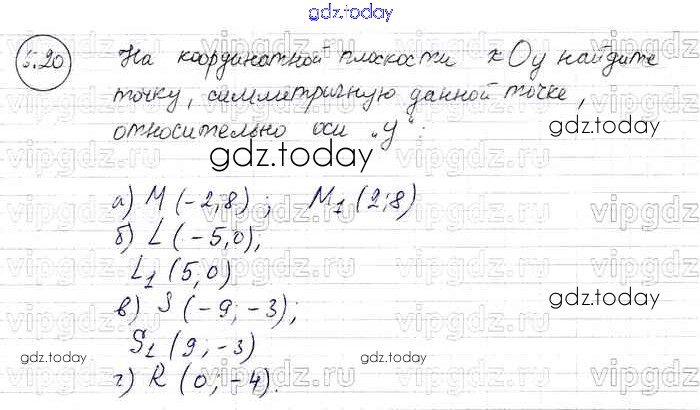 gdz.today
5.20 На координатной плоскости xOy найдите
точку, симметричную данной точке,
относительно оси „y“:
gdz.today
gdz.today
а) M (-2;8) ; M₁ (2;8)
б) L (-5;0);
L₁ (5;0)
в) S (-9;-3);
S₁ (9;-3)
г) R (0;-4).
gdz.today
gdz.today
vipgdz.ru